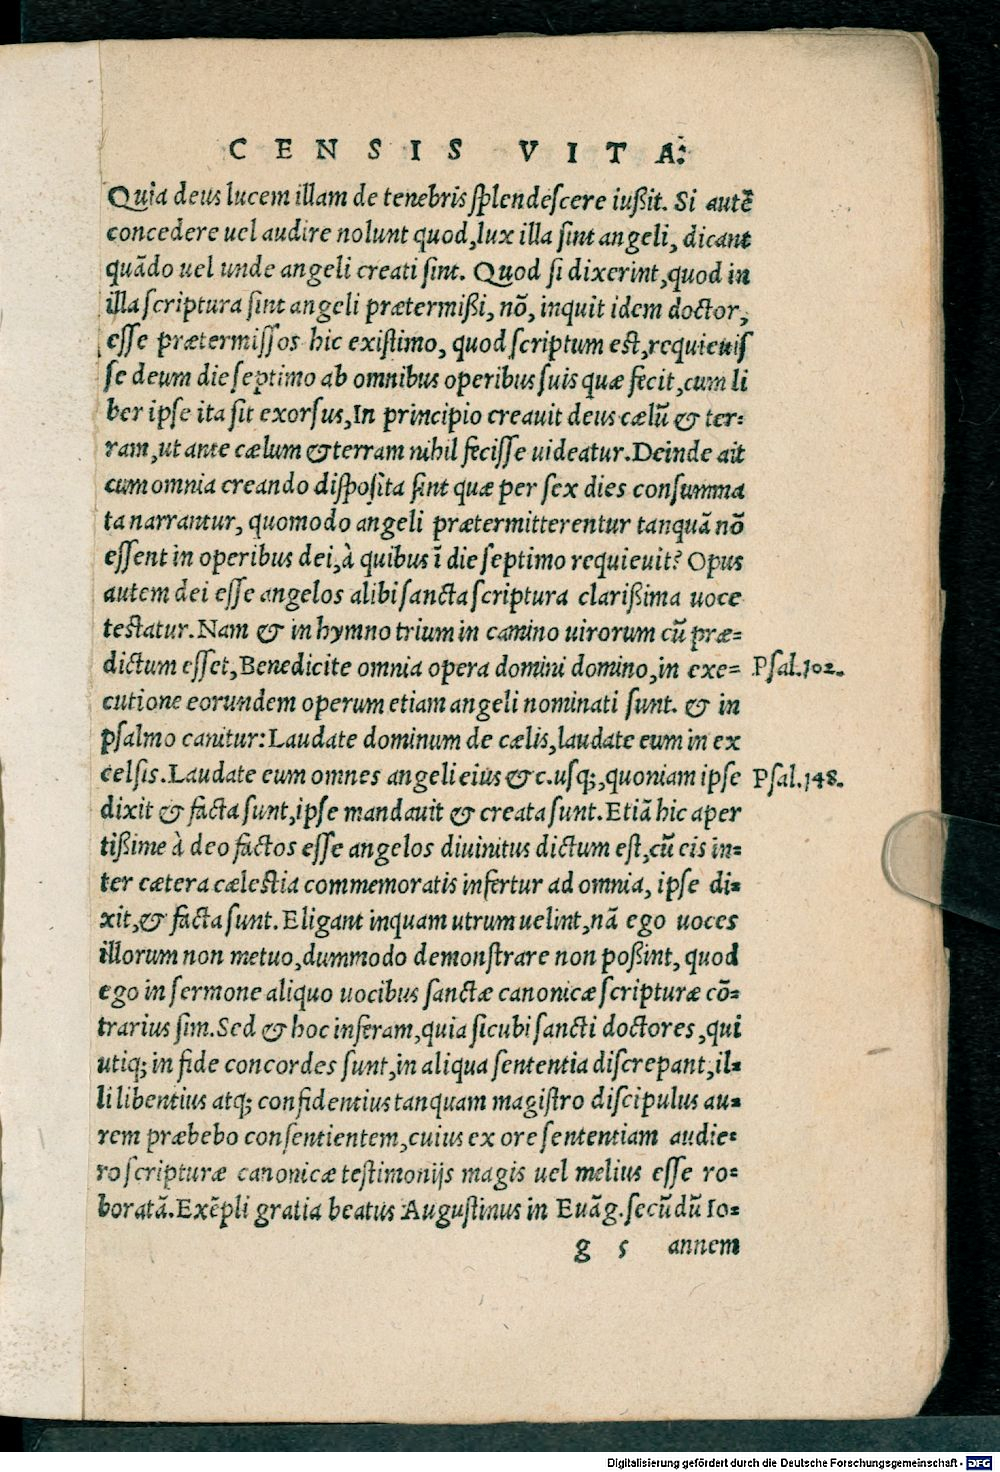 CENSIS VITA.
Quia deus lucem illam de tenebris splendescere iußit. Si autẽ
concedere uel audire nolunt quod, lux illa sint angeli, dicant
quãdo uel unde angeli creati sint. Quod si dixerint, quod in
illa scriptura sint angeli prætermißi, nõ, inquit idem doctor,
esse prætermissos hic existimo, quod scriptum est, requieuis
se deum die septimo ab omnibus operibus suis quæ fecit, cum li
ber ipse ita sit exorsus, In principio creauit deus cælũ & ter=
ram, ut ante cælum & terram nihil fecisse uideatur. Deinde ait
cum omnia creando disposita sint quæ per sex dies consumma
ta narrantur, quomodo angeli prætermitterentur tanquã nõ
essent in operibus dei, à quibus ĩ die septimo requieuit? Opus
autem dei esse angelos alibi sancta scriptura clarißima uoce
testatur. Nam & in hymno trium in camino uirorum cũ præ=
dictum esset, Benedicite omnia opera domini domino, in exe= Psal.102.
cutione eorundem operum etiam angeli nominati sunt. & in
psalmo canitur: Laudate dominum de cælis, laudate eum in ex
celsis. Laudate eum omnes angeli eius &c. usq;, quoniam ipse Psal.148.
dixit & facta sunt, ipse mandauit & creata sunt. Etiã hic aper
tißime à deo factos esse angelos diuinitus dictum est, cũ eis in=
ter cætera cælestia commemoratis infertur ad omnia, ipse di=
xit, & facta sunt. Eligant inquam utrum uelint, nã ego uoces
illorum non metuo, dummodo demonstrare non poßint, quod
ego in sermone aliquo uocibus sanctæ canonicæ scripturæ cõ=
trarius sim. Sed & hoc inferam, quia sicubi sancti doctores, qui
utiq; in fide concordes sunt, in aliqua sententia discrepant, il=
li libentius atq; confidentius tanquam magistro discipulus au=
rem præbebo consentientem, cuius ex ore sententiam audie=
ro scripturæ canonicæ testimonijs magis uel melius esse ro=
boratã. Exẽpli gratia beatus Augustinus in Euãg. secũdũ Io=
g 5 annem
Digitalisierung gefördert durch die Deutsche Forschungsgemeinschaft - DFG